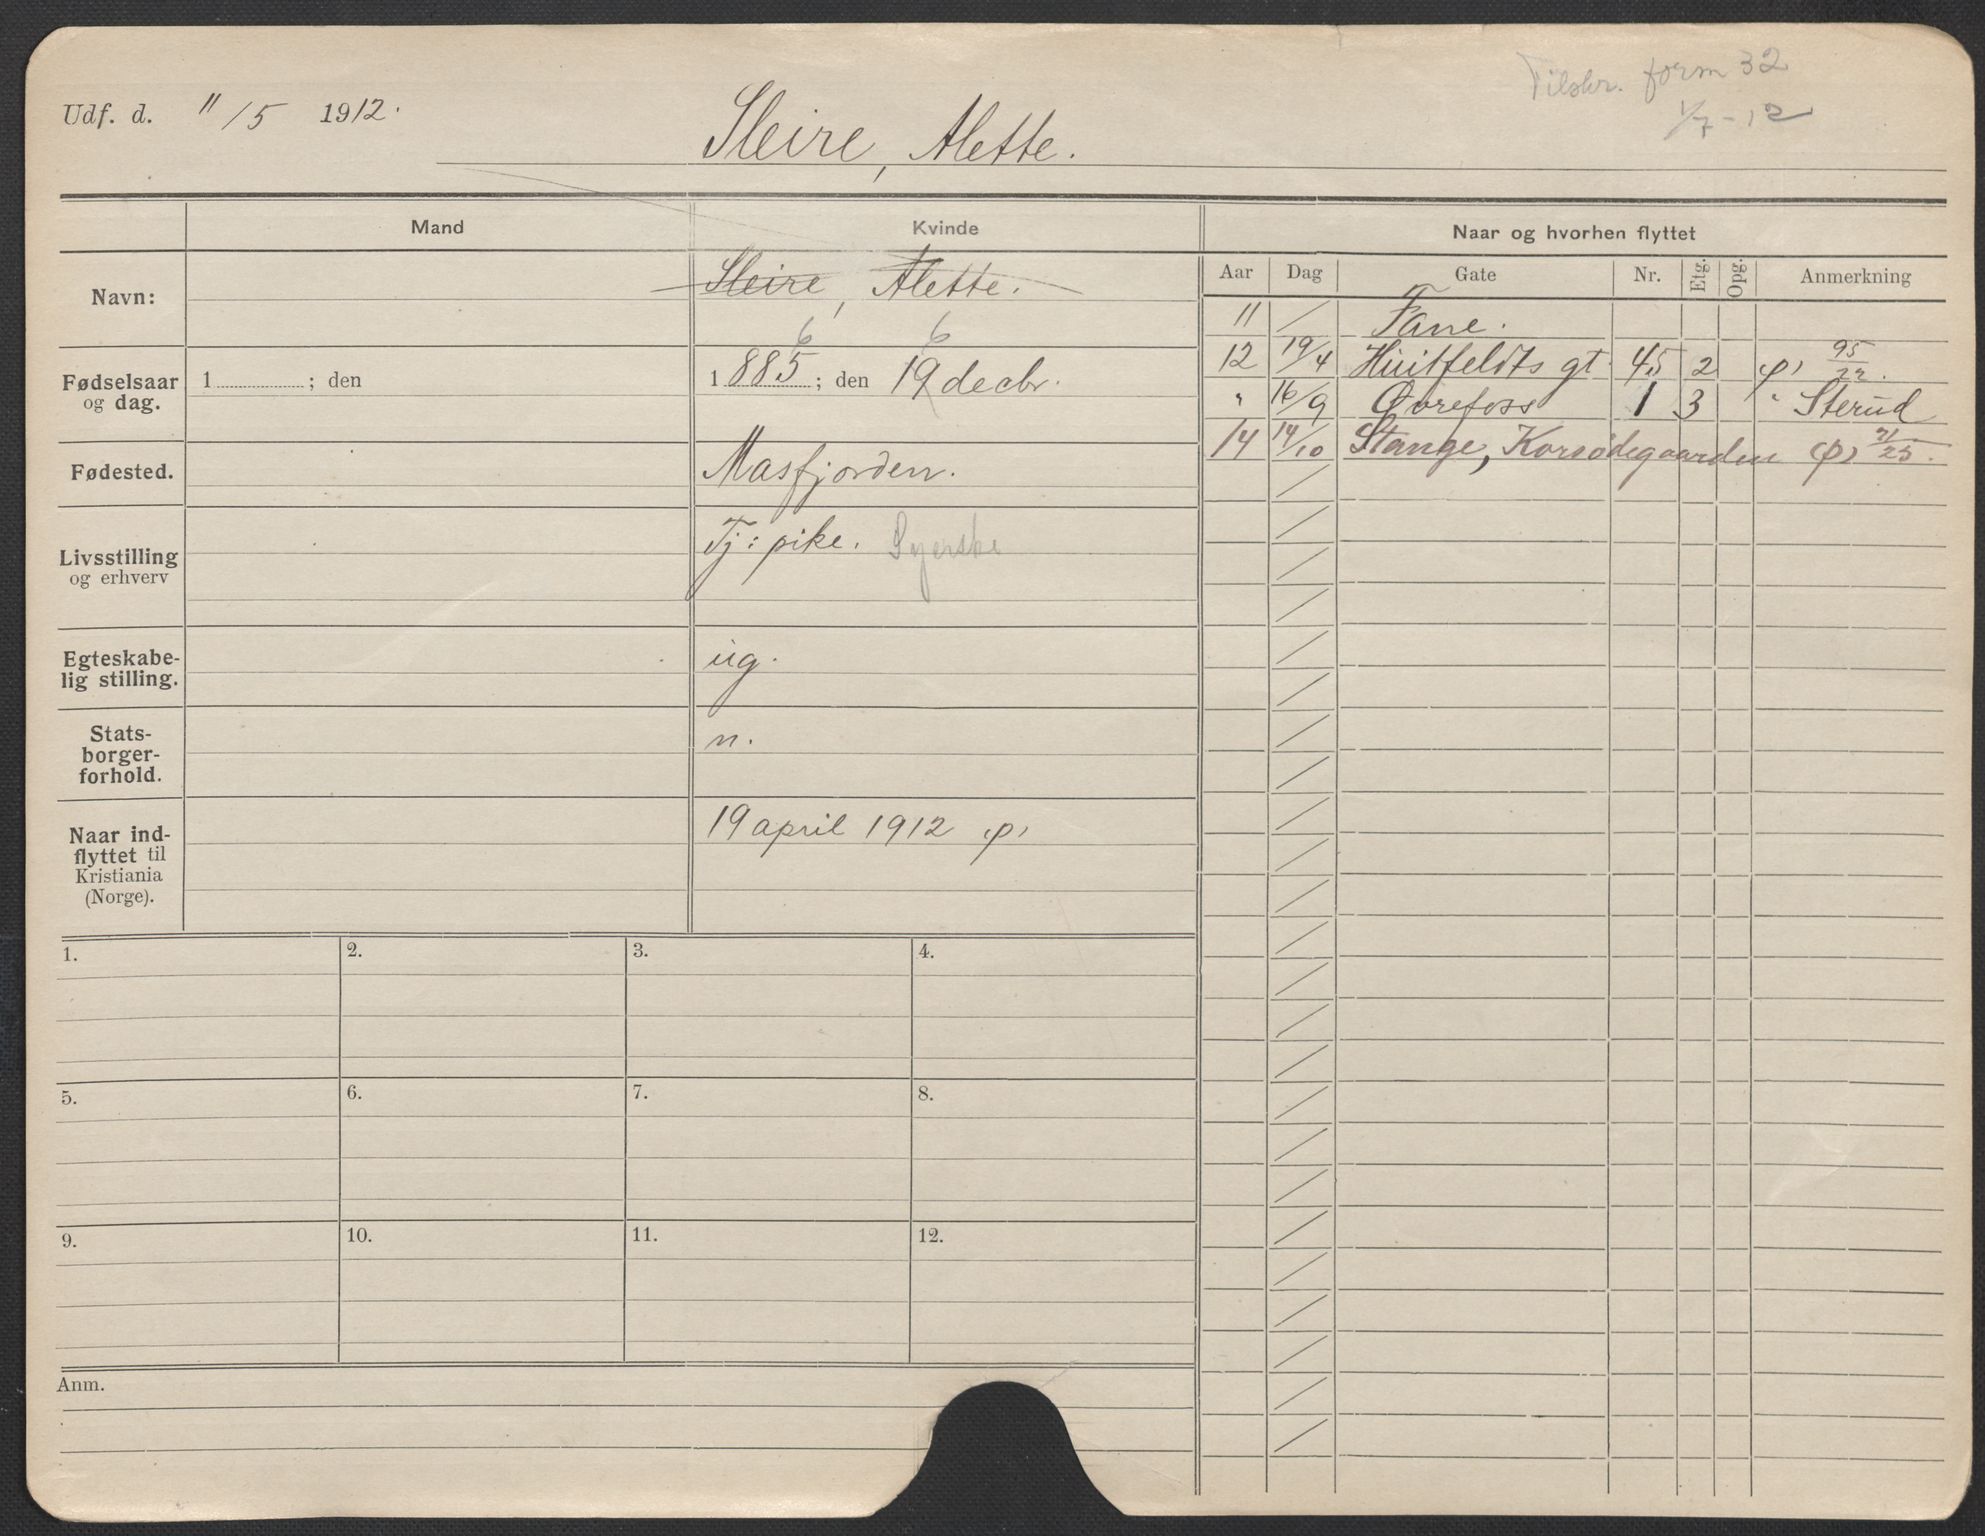 Tilskr. form 32
1/7 - 12
Udf. d. 11/5 1912.
Sleire, Alette.
Mand Kvinde Naar og hvorhen flyttet
Aar Dag Gate Nr. Etg. Opg. Anmerkning
Navn: Sleire, Alette.
11 / Fane.
12 19/4 Huitfeldts gt. 45 2 (p) 95/22.
" 16/9 Øvrefoss 1 3 " Sterud
14 14/10 Stange, Korsødegaarden (p) 21/25.
6 6
Fødselsaar og dag. 1 ; den 1885 ; den 19 decbr.
Fødested. Masfjorden.
Livsstilling og erhverv Tj: pike. Syerske
Egteskabe-
lig stilling. ug.
Stats-
borger-
forhold. n.
Naar ind-
flyttet til
Kristiania
(Norge). 19 april 1912 (p)
1. 2. 3. 4.
5. 6. 7. 8.
9. 10. 11. 12.
Anm.